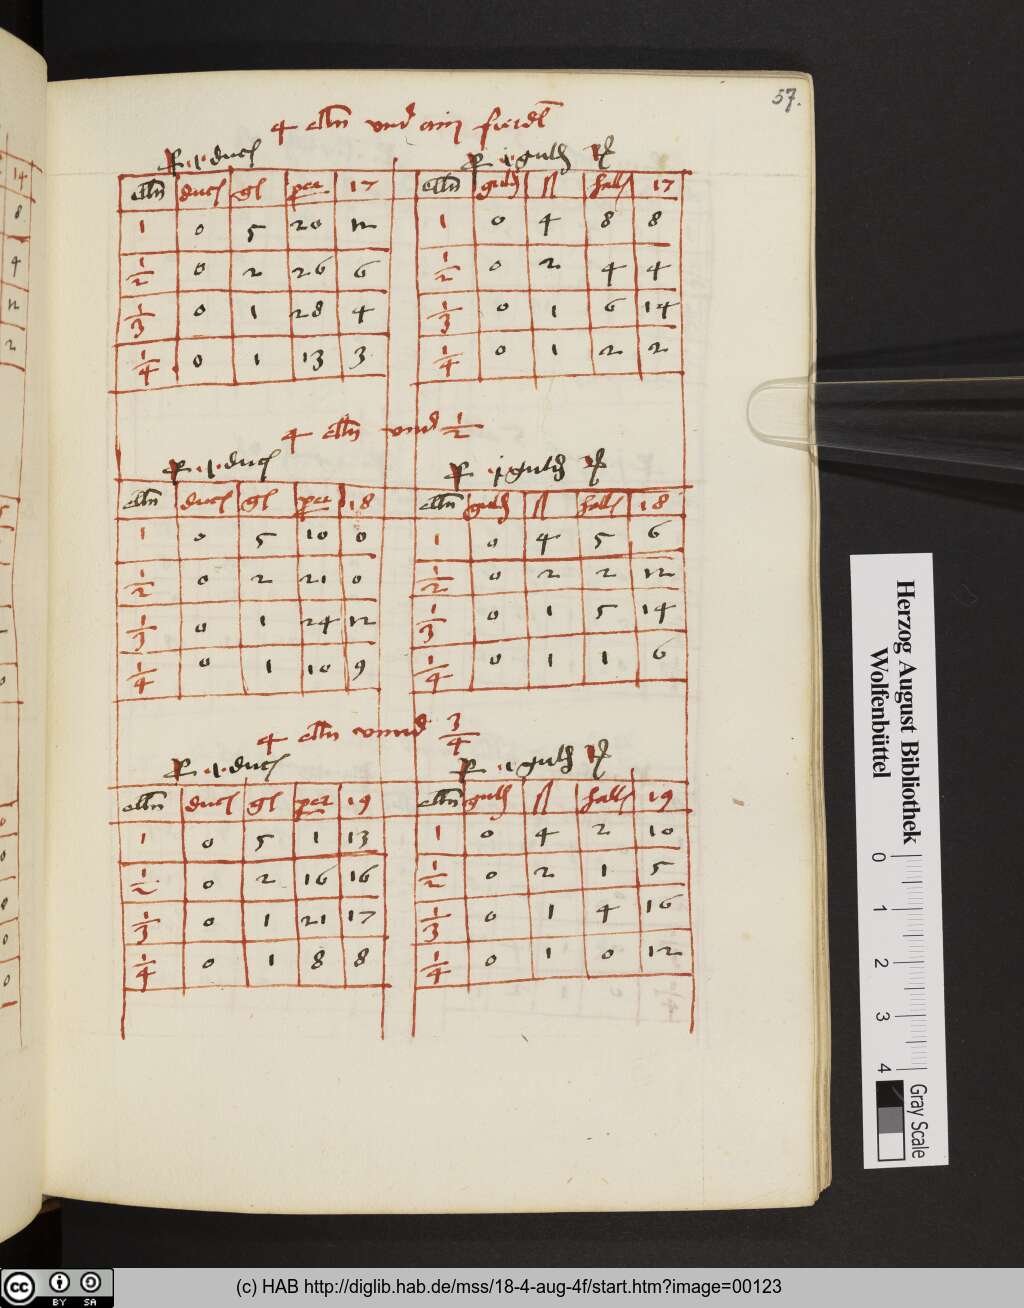 57.
4 elln vnd ain fierdl
P .1. duc
P .1. guld
elln duc gl per 17
elln guld ſſ hall 17
1 0 5 20 12
1 0 4 8 8
1/2 0 2 26 6
1/2 0 2 4 4
1/3 0 1 28 4
1/3 0 1 6 14
1/4 0 1 13 3
1/4 0 1 2 2
4 elln vnd 1/2
P .1. duc
P .1. guld
elln duc gl per 18
elln guld ſſ hall 18
1 0 5 10 0
1 0 4 5 6
1/2 0 2 21 0
1/2 0 2 2 12
1/3 0 1 24 12
1/3 0 1 5 14
1/4 0 1 10 9
1/4 0 1 1 6
4 elln vnnd 3/4
P .1. duc
P .1. guld
elln duc gl per 19
elln guld ſſ hall 19
1 0 5 1 13
1 0 4 2 10
1/2 0 2 16 16
1/2 0 2 1 5
1/3 0 1 21 17
1/3 0 1 4 16
1/4 0 1 8 8
1/4 0 1 0 12
14
8
4
12
2
Herzog August Bibliothek
Wolfenbüttel
0 1 2 3 4
Gray Scale
cc BY SA
(c) HAB http://diglib.hab.de/mss/18-4-aug-4f/start.htm?image=00123